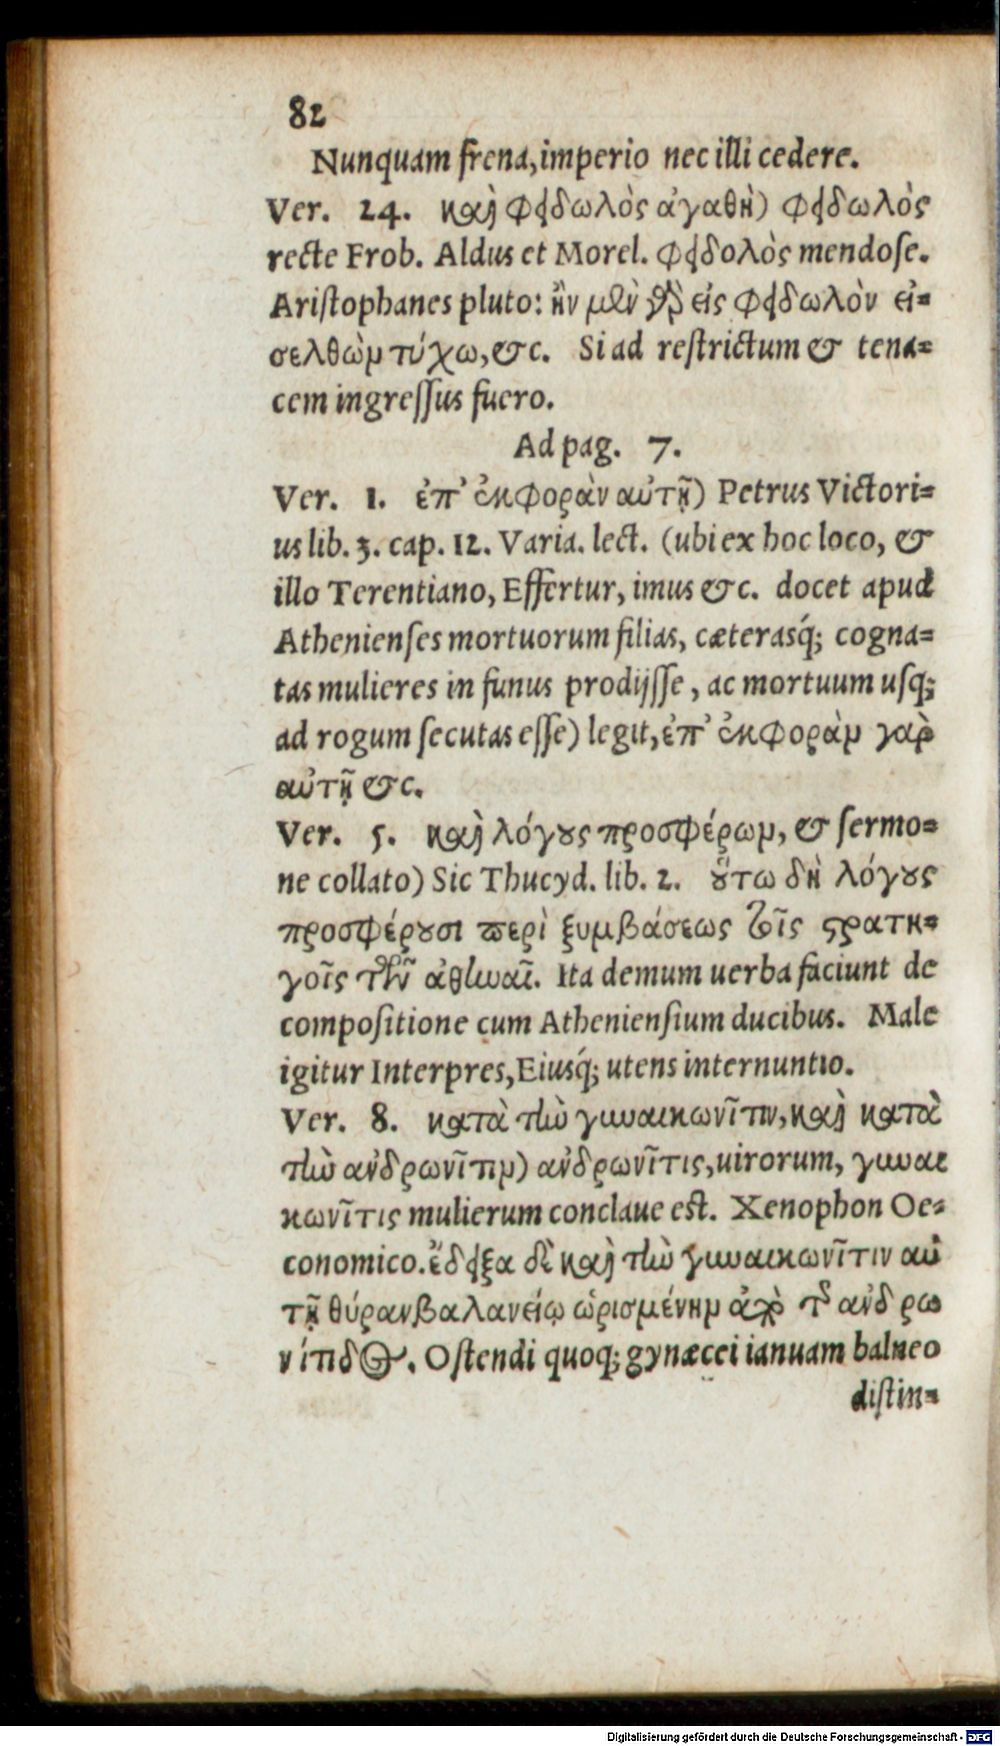 82
Nunquam frena, imperio nec illi cedere.
Ver. 24. καὶ φειδωλὸς ἀγαθὴ) φειδωλὸς
recte Frob. Aldus et Morel. φειδολὸς mendose.
Aristophanes pluto: ἢν μὲν γὰρ εἰς φειδωλὸν εἰ=
σελθὼμ τύχω, &c. Si ad restrictum & tena=
cem ingressus fuero.
Ad pag. 7.
Ver. 1. ἐπ' ἐκφορὰν αὐτῇ) Petrus Victori=
us lib. 3. cap. 12. Varia. lect. (ubi ex hoc loco, &
illo Terentiano, Effertur, imus &c. docet apud
Athenienses mortuorum filias, cæterasq́; cogna=
tas mulieres in funus prodijsse, ac mortuum usq;
ad rogum secutas esse) legit, ἐπ' ἐκφορὰμ γαρ̀
αὐτῇ &c.
Ver. 5. καὶ λόγȣς προσφέρωμ, & sermo=
ne collato) Sic Thucyd. lib. 2. ȣ̔́τω δὴ λόγȣς
προσφέρȣσι ϖερὶ ξυμβάσεως τοῖς ϛρατη=
γοῖς τῶν ἀθηναί. Ita demum uerba faciunt de
compositione cum Atheniensium ducibus. Male
igitur Interpres, Eiusq́; utens internuntio.
Ver. 8. κατὰ τὴν γυναικωνῖτιν, καὶ κατὰ
τὴν ανδρωνῖτιμ) ανδρωνῖτις, uirorum, γυναι
κωνῖτις mulierum conclaue est. Xenophon Oe=
conomico. ἔδειξα δὲ καὶ τὴν γυναικωνῖτιν αὐ
τῇ θύραν βαλανείῳ ὡρισμένημ ἀπὸ τῆς ανδρω
νίτιδος. Ostendi quoq; gynæcei ianuam balneo
distin=
Digitalisierung gefördert durch die Deutsche Forschungsgemeinschaft - DFG